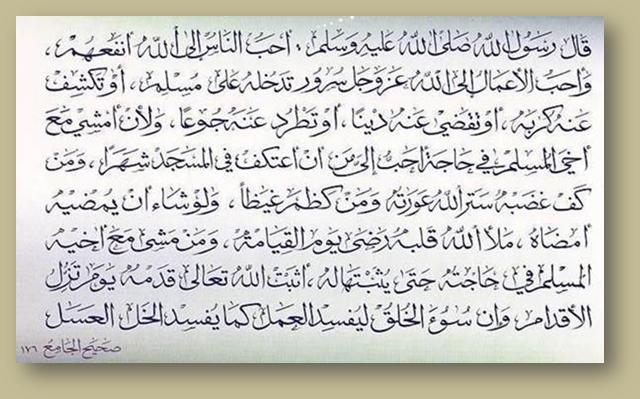 قَالَ رَسُولُ اللهِ صَلَّى اللهُ عَلَيْهِ وَسَلَّم ، أَحَبُّ النَّاسِ إِلَى اللهِ أَنْفَعُهُمْ ،
وَأَحَبُّ الأَعْمَالِ إِلَى اللهِ عَزَّ وَجَلَّ سُرُورٌ تُدْخِلُهُ عَلَى مُسْلِمٍ ، أَوْ تَكْشِفُ
عَنْهُ كُرْبَةً ، أَوْ تَقْضِي عَنْهُ دَيْنًا ، أَوْ تَطْرُدُ عَنْهُ جُوعًا ، وَلَأَنْ أَمْشِيَ مَعَ
أَخِي الْمُسْلِمِ فِي حَاجَةٍ أَحَبُّ إِلَيَّ مِنْ أَنْ أَعْتَكِفَ فِي الْمَسْجِدِ شَهْرًا ، وَمَنْ
كَفَّ غَضَبَهُ سَتَرَ اللهُ عَوْرَتَهُ وَمَنْ كَظَمَ غَيْظًا ، وَلَوْ شَاءَ أَنْ يُمْضِيَهُ
أَمْضَاهُ ، مَلَأَ اللهُ قَلْبَهُ رِضًى يَوْمَ الْقِيَامَةِ ، وَمَنْ مَشَى مَعَ أَخِيهِ
الْمُسْلِمِ فِي حَاجَتِهِ حَتَّى يُثْبِتَهَا لَهُ ، أَثْبَتَ اللهُ تَعَالَى قَدَمَهُ يَوْمَ تَزِلُّ
الأَقْدَامُ ، وَإِنَّ سُوءَ الْخُلُقِ لَيُفْسِدُ الْعَمَلَ كَمَا يُفْسِدُ الْخَلُّ الْعَسَلَ
صَحِيحُ الْجَامِع ١٧٦